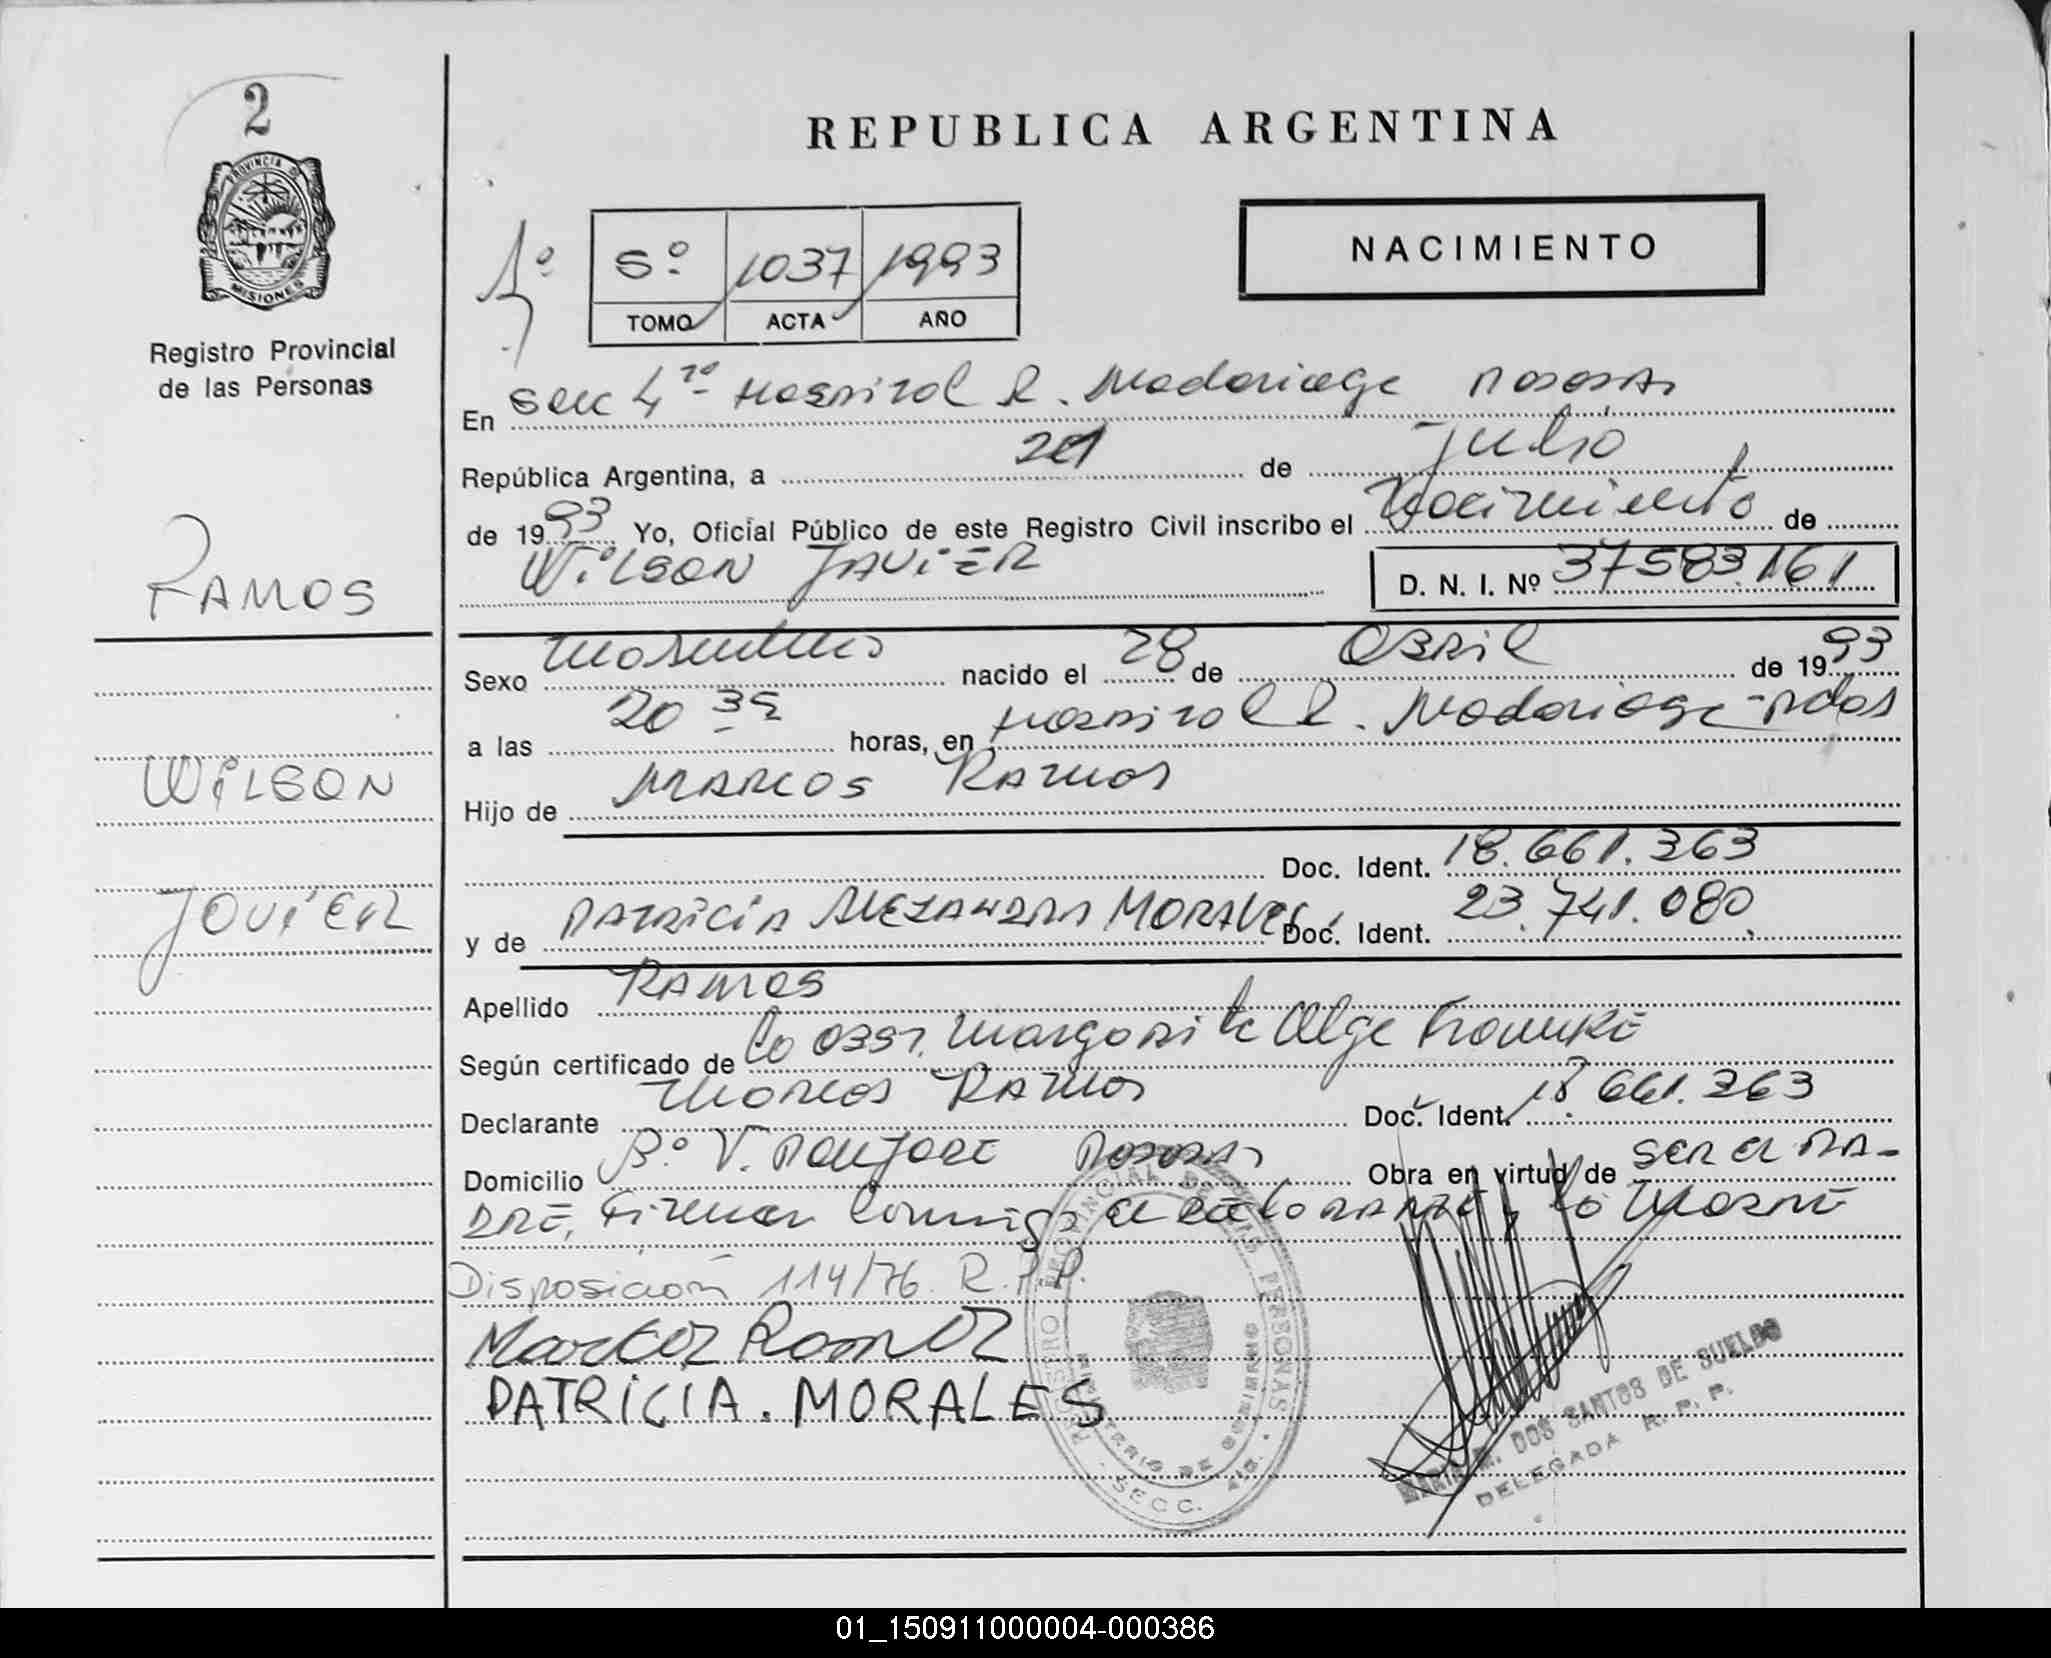 2
PROVINCIA DE
MISIONES
Registro Provincial
de las Personas
REPUBLICA ARGENTINA
NACIMIENTO
1º
5º 1037 1993
TOMO ACTA AÑO
En Secc 4ta Hospital R. Madariaga Posadas
República Argentina, a 21 de Julio
de 1993 Yo, Oficial Público de este Registro Civil inscribo el Nacimiento de
WILSON JAViER D. N. I. Nº 37583.161
RAMOS
WiLSON
JAViER
Sexo Masculino nacido el 28 de Abril de 1993
a las 20 35 horas, en Hospital R. Madariaga - Pdas
Hijo de MARCOS RAMOS
Doc. Ident. 18.661.363
y de PATRiCiA ALEJANDRA MORALES Doc. Ident. 23.741.080
Apellido RAMOS
Según certificado de la Obst. Margarita Olga
Declarante Marcos RAMOS Doc. Ident. 18.661.363
Domicilio Bº V. Posadas Obra en virtud de ser el PA-
DRE, Firman conmigo el declarante y la Madre
Disposición 114/76 R.P.P.
Marcos Ramos
PATRiCiA. MORALES
REGISTRO PROVINCIAL DE LAS PERSONAS
MINISTERIO DE GOBIERNO
SECC. 4ta.
MARIA M. DOS SANTOS DE SUELDO
DELEGADA R. P. P.
01_150911000004-000386